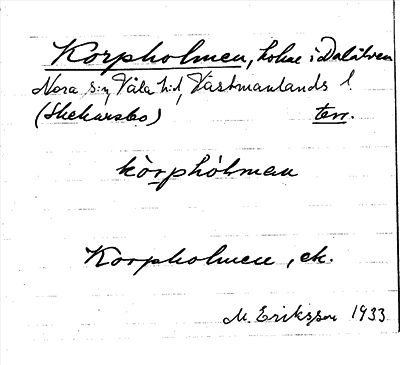 Korpholmen, holme i Dalälven
Nora sn, Våla hd, Västmanlands l.
(Shekarsbo) terr.
kòrphólman
Korpholmen, ek.
M. Eriksson 1933